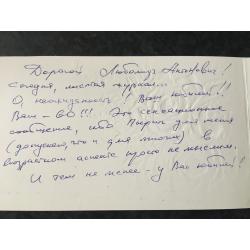 Дорогой Любомир Антонович!
Сегодня, листая журнал...
О, неожиданность! Ваш юбилей!!
Вам – 60!!! Это сенсационное
сообщение, ибо Пырич для меня
(допускаю, что и для многих) в
возрастном аспекте просто не мыслим.
И тем не менее – у Вас юбилей!